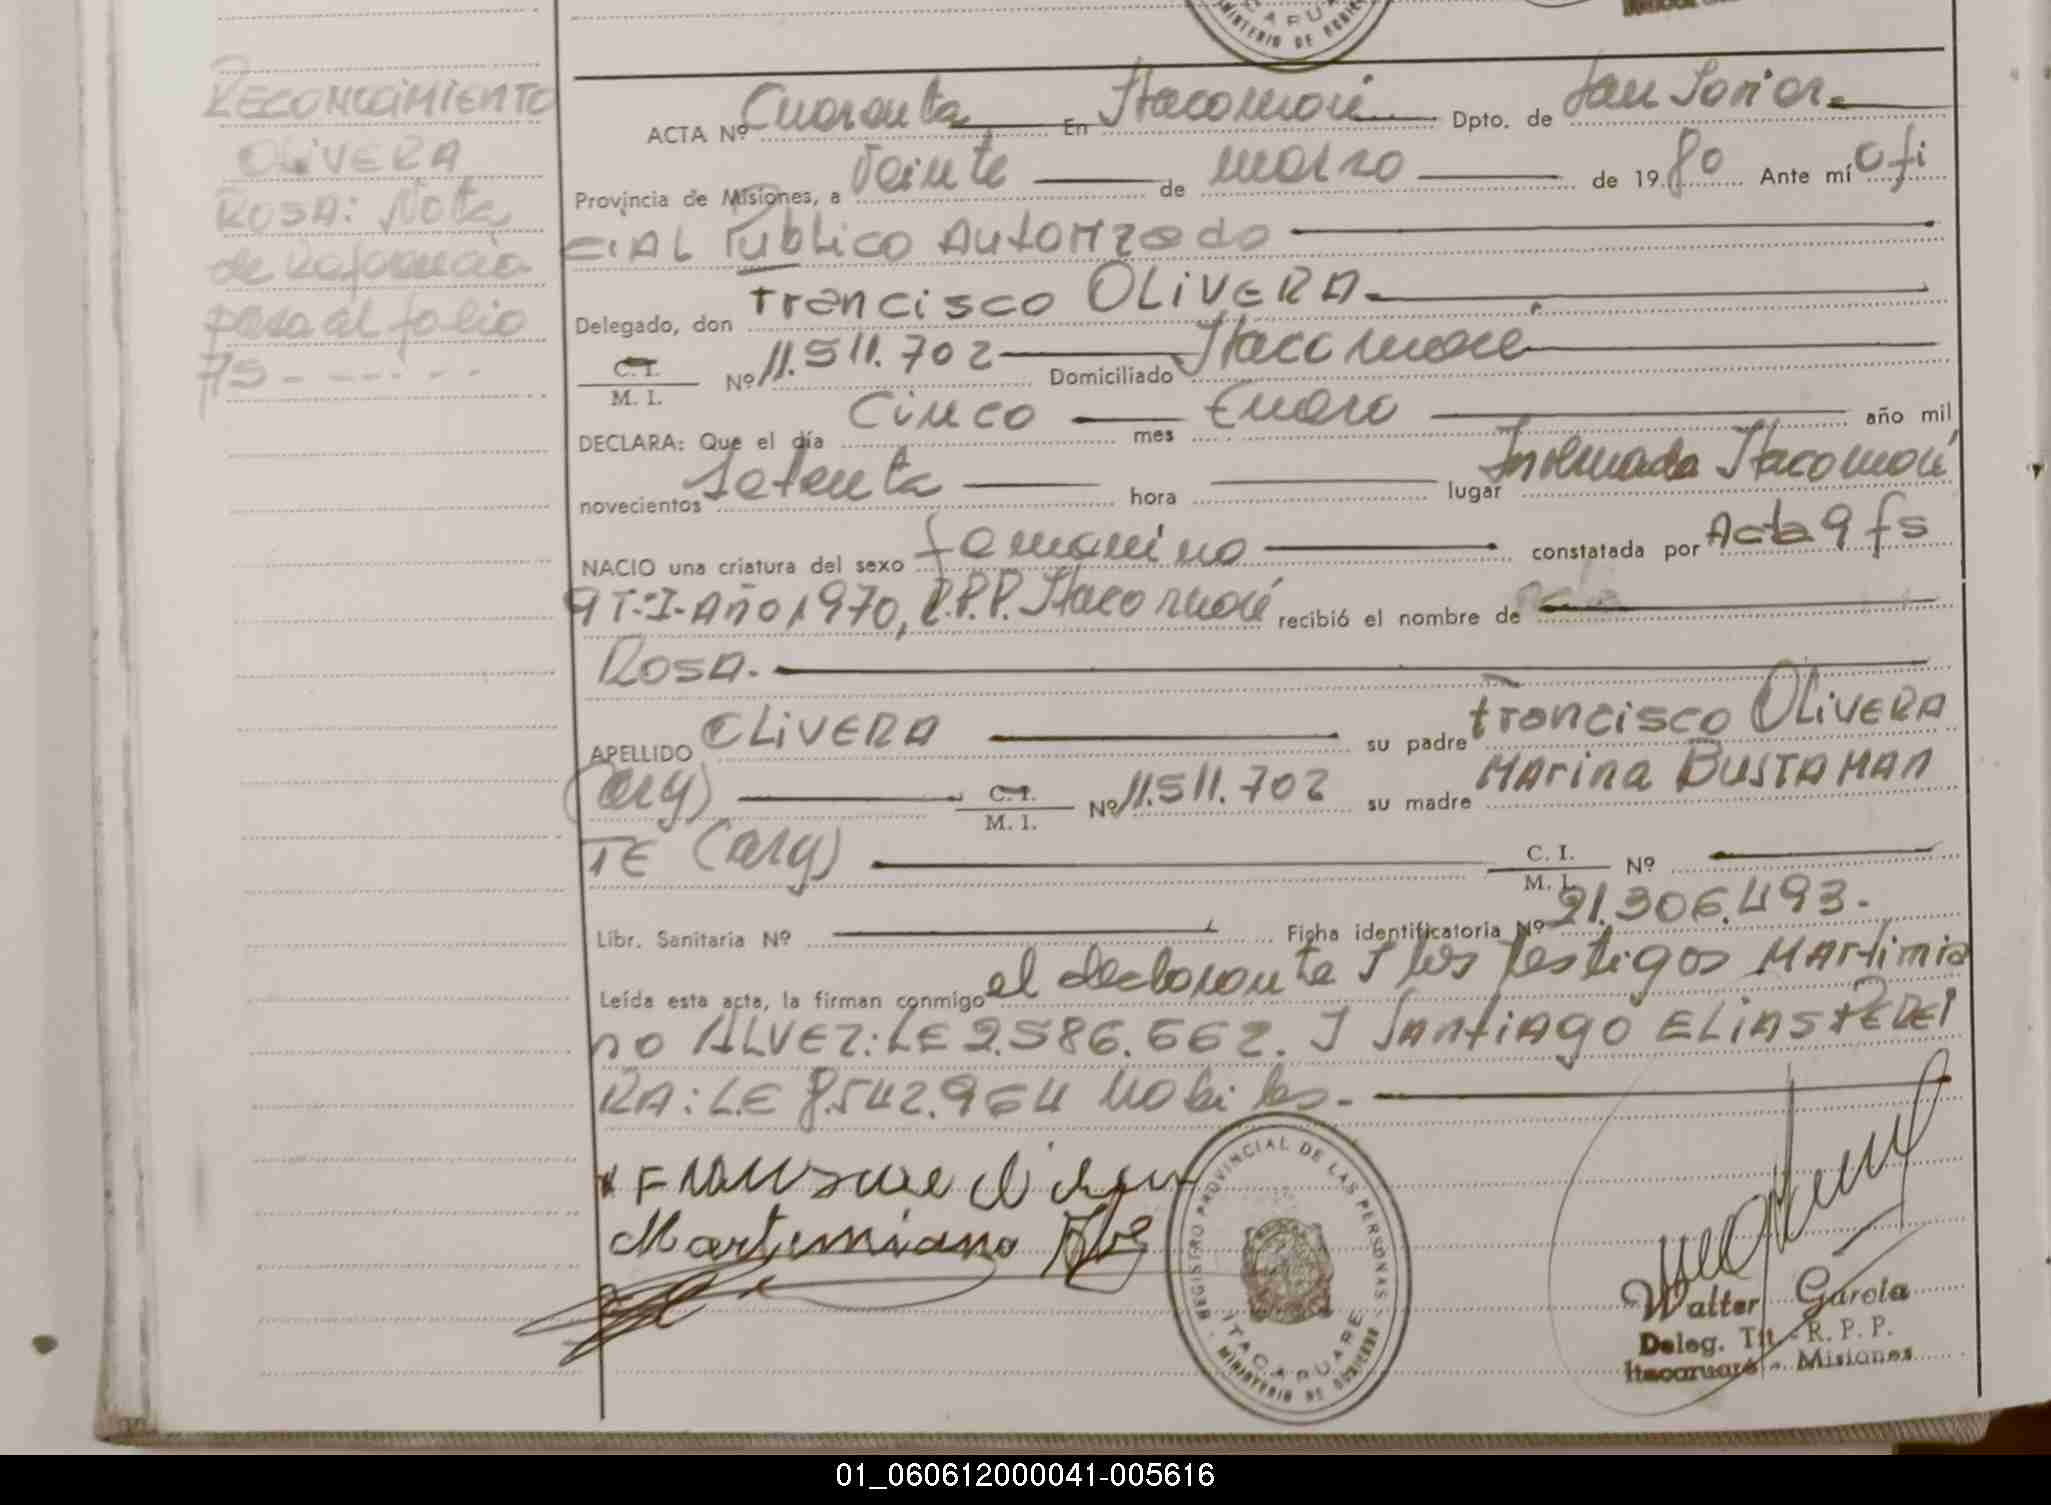 RECONOCIMIENTO
OLIVERA
ROSA: Nota
de Referencia
pasa al folio
75 - - - - - -
ACTA Nº Cuarenta En Itacaruaré Dpto. de San Javier.
Provincia de Misiones, a Veinte de marzo de 19 80 Ante mí Ofi
CIAL Publico Autorizado
Delegado, don Francisco OLIVERA.
C. I. / M. I. Nº 11.511.702 Domiciliado Itacaruaré
DECLARA: Que el día Cinco mes Enero año mil
novecientos Setenta hora lugar Itacaruaré
NACIO una criatura del sexo femenino constatada por Acta 9 fs
9 T: I- Año 1970, R.P.P. Itacaruaré recibió el nombre de
ROSA.
APELLIDO OLIVERA su padre Francisco OLIVERA
(arg) C. I. / M. I. Nº 11.511.702 su madre MARINA BUSTAMAN
TE (arg) C. I. / M. I. Nº
Libr. Sanitaria Nº Ficha identificatoria Nº 21.306.493.
Leída esta acta, la firman conmigo el declarante I los testigos MARTIMIA
no ALVEZ: LE 2.586.662. I SANTIAGO ELIAS PEREI
RA: L.E 8.542.964 habiles.
Martimiano
REGISTRO PROVINCIAL DE LAS PERSONAS
ITACARUARE
MINISTERIO DE GOBIERNO
Walter Garola
Deleg. Tit - R. P. P.
Itacaruaré - Misiones
01_060612000041-005616